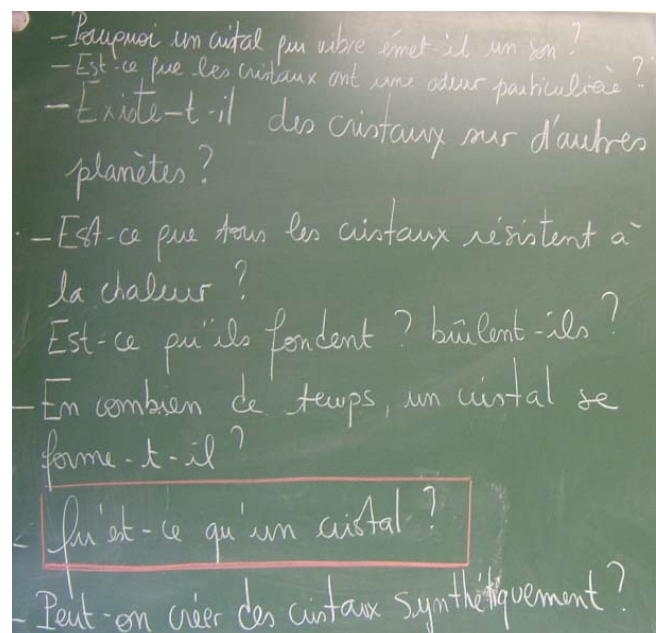 - Pourquoi un cristal qui vibre émet-il un son ?
- Est-ce que les cristaux ont une odeur particulière ?
- Existe-t-il des cristaux sur d'autres
planètes ?
- Est-ce que tous les cristaux résistent à
la chaleur ?
Est-ce qu'ils fondent ? brûlent-ils ?
- En combien de temps, un cristal se
forme-t-il ?
- Qu'est-ce qu'un cristal ?
- Peut-on créer des cristaux synthétiquement ?